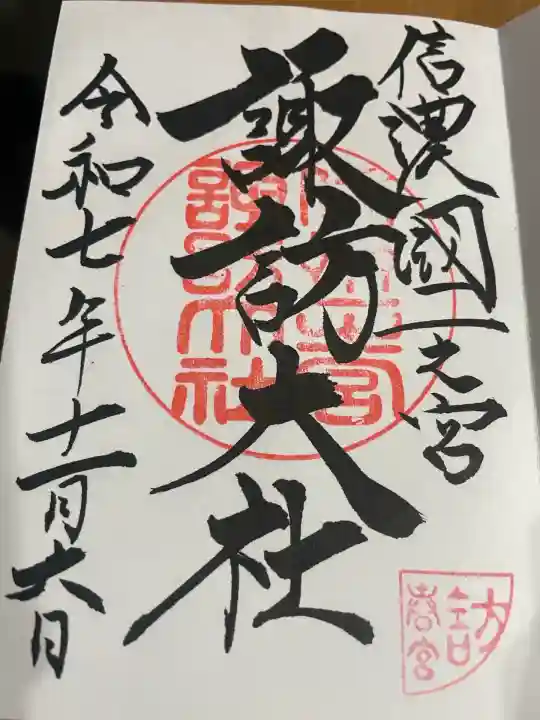 信濃國一之宮
諏訪大社
令和七年十一月六日
訪
春宮